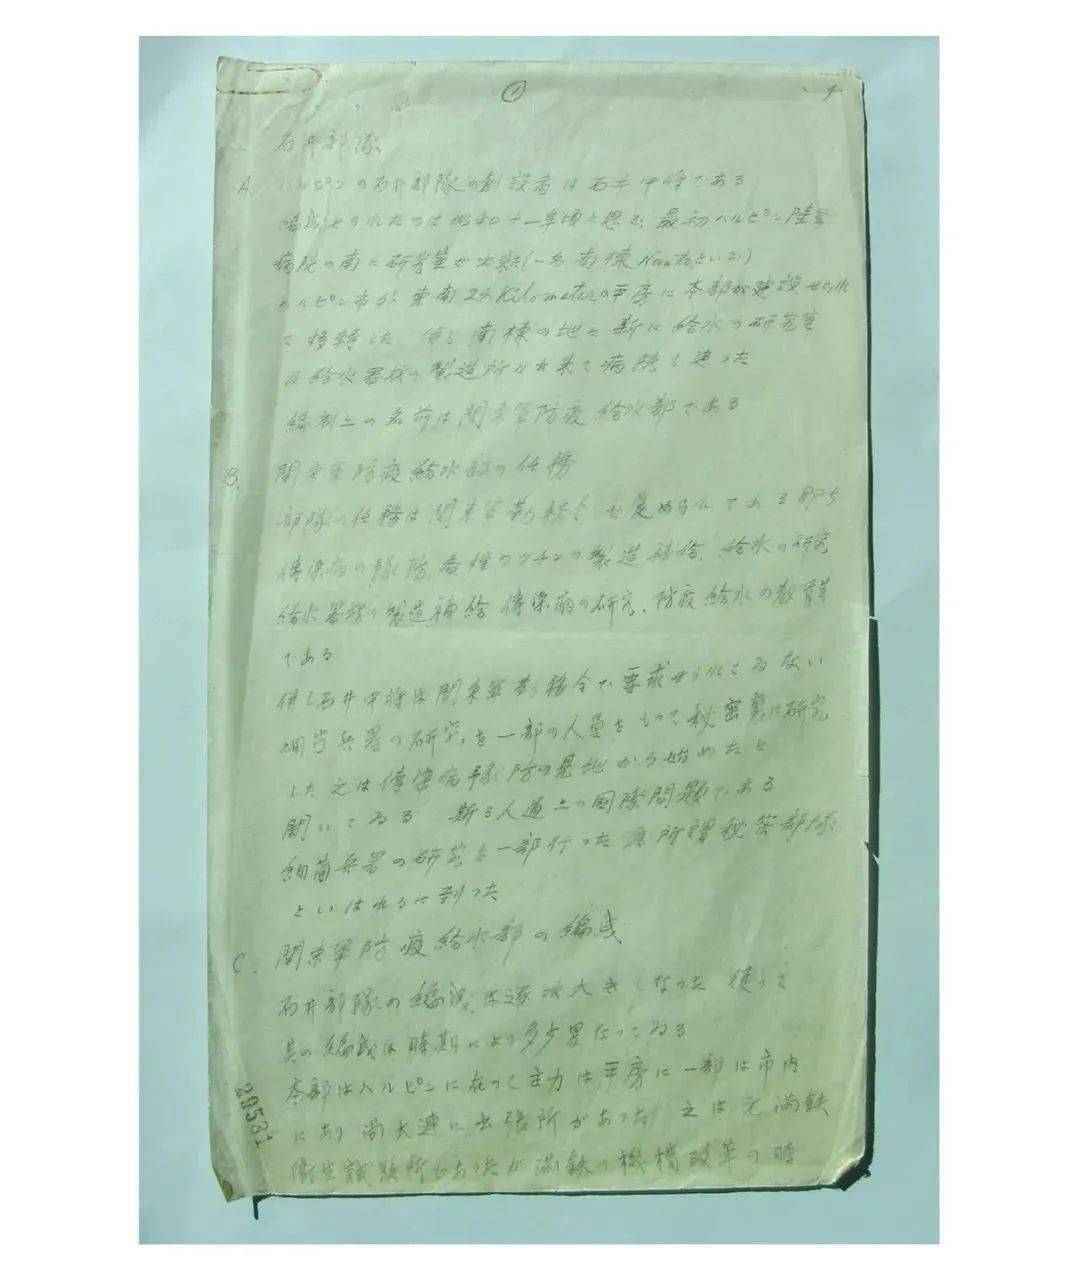 ①
石井部隊
A. ハルピンの石井部隊の創設者は石井中將である
編成せられたのは昭和十一年頃と思ふ、最初ハルピン陸軍
病院の南に研究室が出来た(一名南棟 といふ)
ハルピン市外東南24 Kilometerの平房に本部が建設せられ
て移轉した 併し南棟の地に新に給水の研究室
及給水器材の製造所が出来て病院も建った
編制上の名前は関東軍防疫給水部である
B. 関東軍防疫給水部の任務
部隊の任務は関東軍勤務令で定められてある即ち
傳染病の豫防各種ワクチンの製造補給、給水の研究
給水器材の製造補給 傳染病の研究、防疫給水の教育
である
併し石井中將は関東軍勤務令で要求せられてゐない
細菌兵器の研究を一部の人員をもって秘密裏に研究
した 之は傳染病豫防の見地から始めたと
聞いてゐる 斯る人道上の國際問題である
細菌兵器の研究を一部行った為所謂秘密部隊
といはれるに到った
C. 関東軍防疫給水部の編成
石井部隊の編成は逐次大きくなった 従って
其の編成は時期により多少異なってゐる
本部はハルピンに在って主力は平房に一部は市内
にあり 尚大連に出張所があった 之は元満鉄
衛生試験所であったが満鉄の機構改革の時
29531